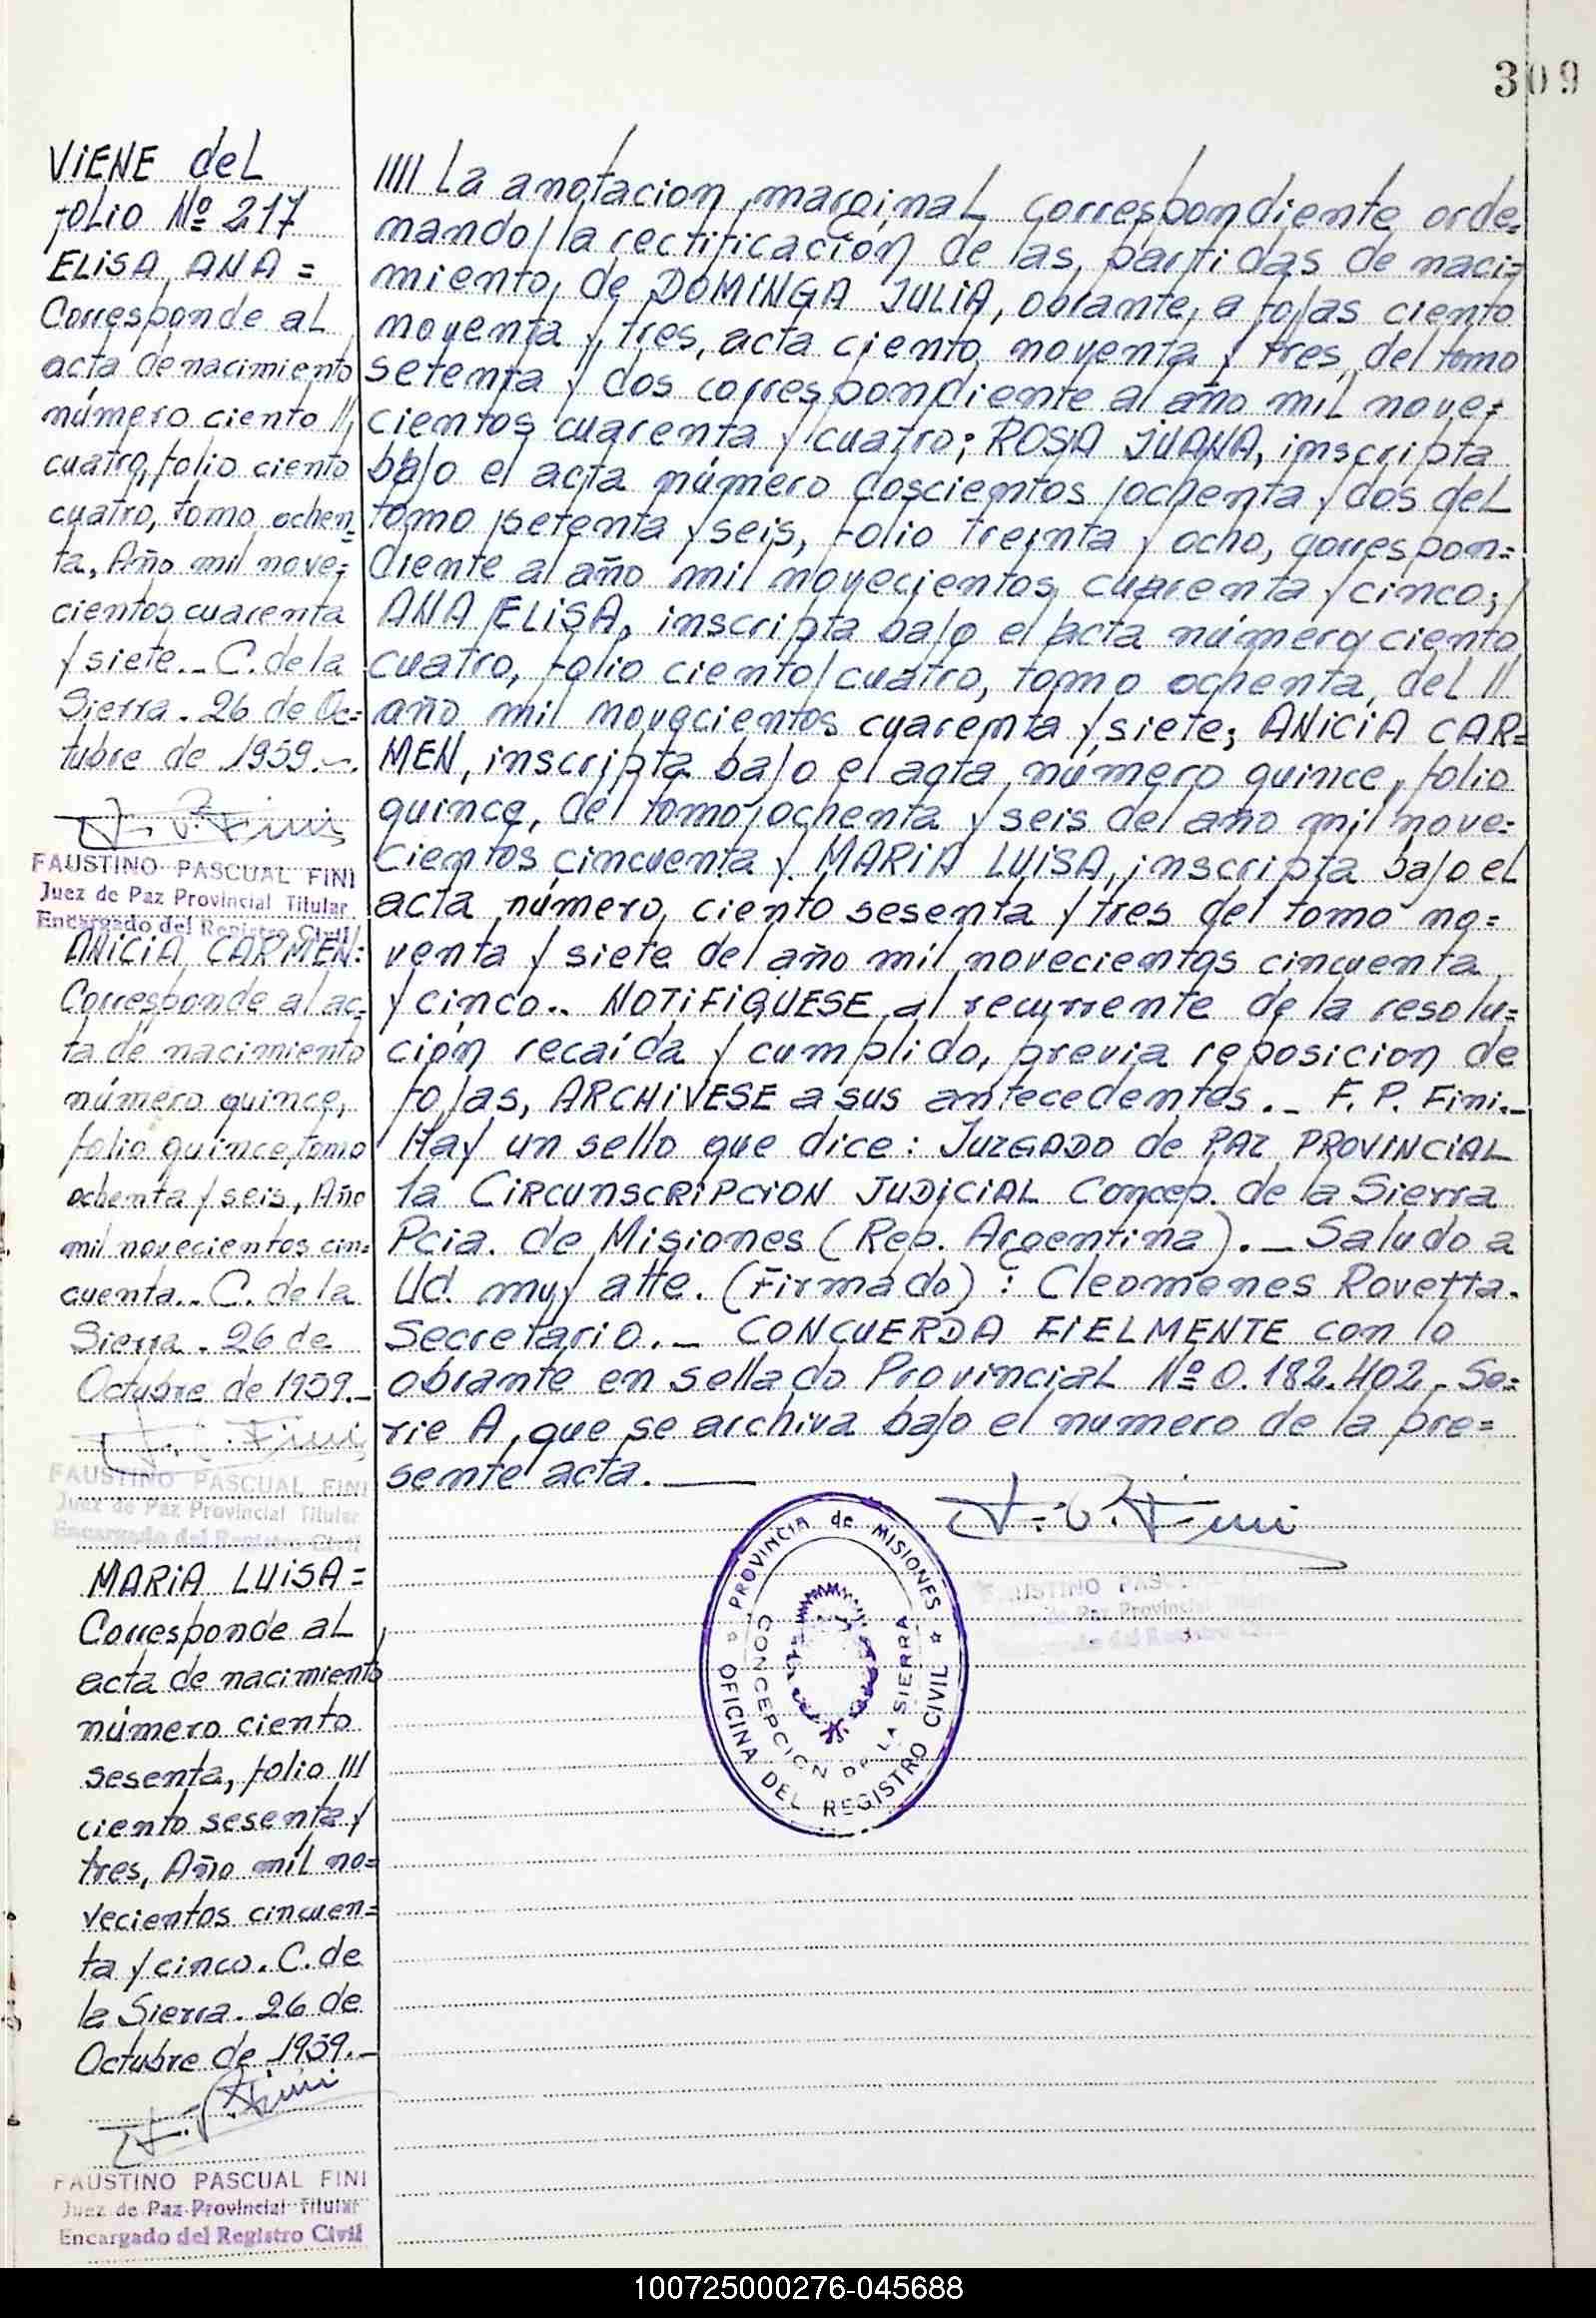 309
VIENE del
folio Nº 217
ELISA ANA =
Corresponde al
acta de nacimiento
número ciento //,
cuatro, folio ciento
cuatro, tomo ochen
ta, Año mil nove=
cientos cuarenta
y siete._ C. de la
Sierra. 26 de Oc=
tubre de 1959._.
F. P. Fini
FAUSTINO PASCUAL FINI
Juez de Paz Provincial Titular
Encargado del Registro Civil
ANICIA CARMEN:
Corresponde al ac=
ta de nacimiento
número quince,
folio quince, tomo
ochenta y seis, Año
mil novecientos cin=
cuenta.. C. de la
Sierra. 26 de
Octubre de 1959._
F. P. Fini
FAUSTINO PASCUAL FINI
Juez de Paz Provincial Titular
Encargado del Registro Civil
MARIA LUISA =
Corresponde al
acta de nacimiento
número ciento
sesenta, folio ///
ciento sesenta y
tres, Año mil no=
vecientos cincuen=
ta y cinco. C. de
la Sierra. 26 de
Octubre de 1959._
F. P. Fini
FAUSTINO PASCUAL FINI
Juez de Paz Provincial Titular
Encargado del Registro Civil
//// La anotacion marginal correspondiente orde=
nando/ la rectificación de las partidas de naci=
miento, de DOMINGA JULIA, obrante, a fojas ciento
noventa y tres, acta ciento noventa y tres, del tomo
setenta y dos correspondiente al año mil nove=
cientos cuarenta y cuatro; ROSA JUANA, inscripta
bajo el acta número doscientos ochenta y dos del
tomo setenta y seis, folio treinta y ocho, correspon=
diente al año mil novecientos cuarenta y cinco; /
ANA ELISA, inscripta bajo el acta número ciento
cuatro, folio ciento cuatro, tomo ochenta, del //
año mil novecientos cuarenta y siete; ANICIA CAR=
MEN, inscripta bajo el acta número quince, folio
quince, del tomo ochenta y seis del año mil nove=
cientos cincuenta y MARIA LUISA, inscripta bajo el
acta número ciento sesenta y tres del tomo no=
venta y siete del año mil novecientos cincuenta
y cinco.. NOTIFIQUESE al recurrente de la resolu=
ción recaída y cumplido, previa reposicion de
fojas, ARCHIVESE a sus antecedentes._ F. P. Fini._
Hay un sello que dice: JUZGADO de PAZ PROVINCIAL
1a CIRCUNSCRIPCION JUDICIAL Concep. de la Sierra
Pcia. de Misiones (Rep. Argentina)._ Saludo a
Ud. muy atte. (Firmado): Cleomenes Rovetta.
Secretario._ CONCUERDA FIELMENTE con lo
obrante en sellado Provincial Nº 0.182.402_ Se=
rie A, que se archiva bajo el numero de la pre=
sente acta.____
F. P. Fini
FAUSTINO PASCUAL FINI
PROVINCIA de MISIONES
OFICINA DEL REGISTRO CIVIL
CONCEPCION DE LA SIERRA
100725000276-045688